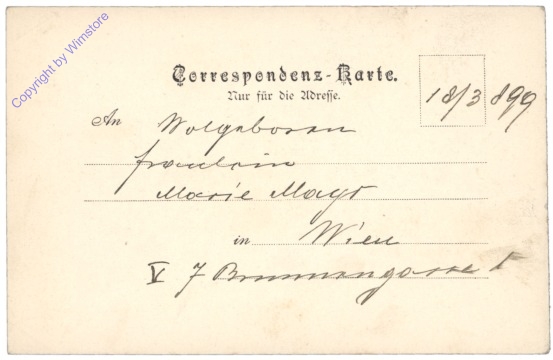 Copyright by Wimstore
Correspondenz-Karte.
Nur für die Adresse.
18/3 899
An Wolgeboren
fräulein
Marie Mayr
in Wien
V 7